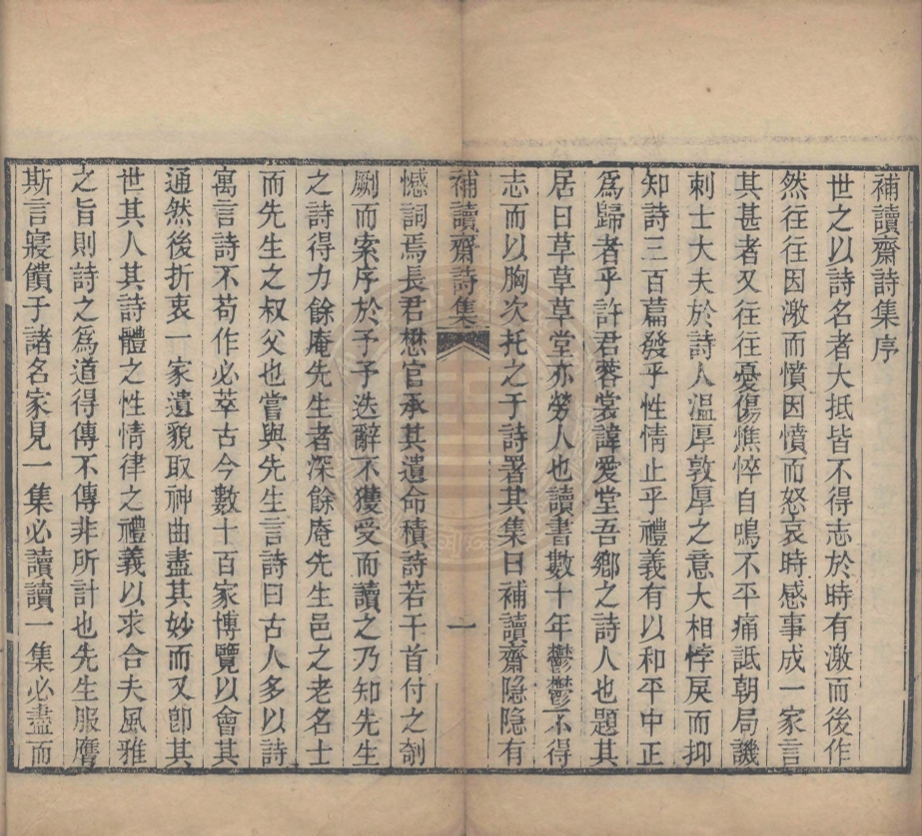 補讀齋詩集序
世之以詩名者大抵皆不得志於時有激而後作
然往往因激而憤因憤而怒哀時感事成一家言
其甚者又往往憂傷憔悴自鳴不平痛詆朝局譏
刺士大夫於詩人溫厚敦厚之意大相悖戾而抑
知詩三百篇發乎性情止乎禮義有以和平中正
爲歸者乎許君蓉裳諱愛堂吾鄉之詩人也題其
居曰草草草堂亦勞人也讀書數十年鬱鬱不得
志而以胸次托之于詩署其集曰補讀齋隱隱有
補讀齋詩集 一
憾詞焉長君懋官承其遺命積詩若干首付之剞
劂而索序於予予迭辭不獲受而讀之乃知先生
之詩得力餘庵先生者深餘庵先生邑之老名士
而先生之叔父也嘗與先生言詩曰古人多以詩
寓言詩不苟作必萃古今數十百家博覽以會其
通然後折衷一家遺貌取神曲盡其妙而又卽其
世其人其詩體之性情律之禮義以求合夫風雅
之旨則詩之爲道得傳不傳非所計也先生服膺
斯言寢饋于諸名家見一集必讀讀一集必盡而